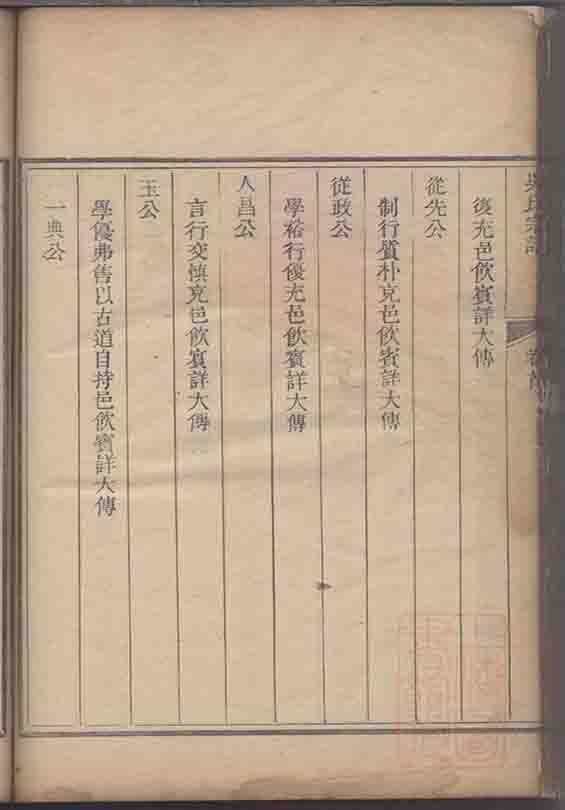 吳氏宗譜 卷首
後充邑飲賓詳大傳
從先公
制行質朴充邑飲賓詳大傳
從政公
學裕行優充邑飲賓詳大傳
人昌公
言行交慎充邑飲賓詳大傳
玉公
學優弗售以古道自持邑飲賓詳大傳
一典公